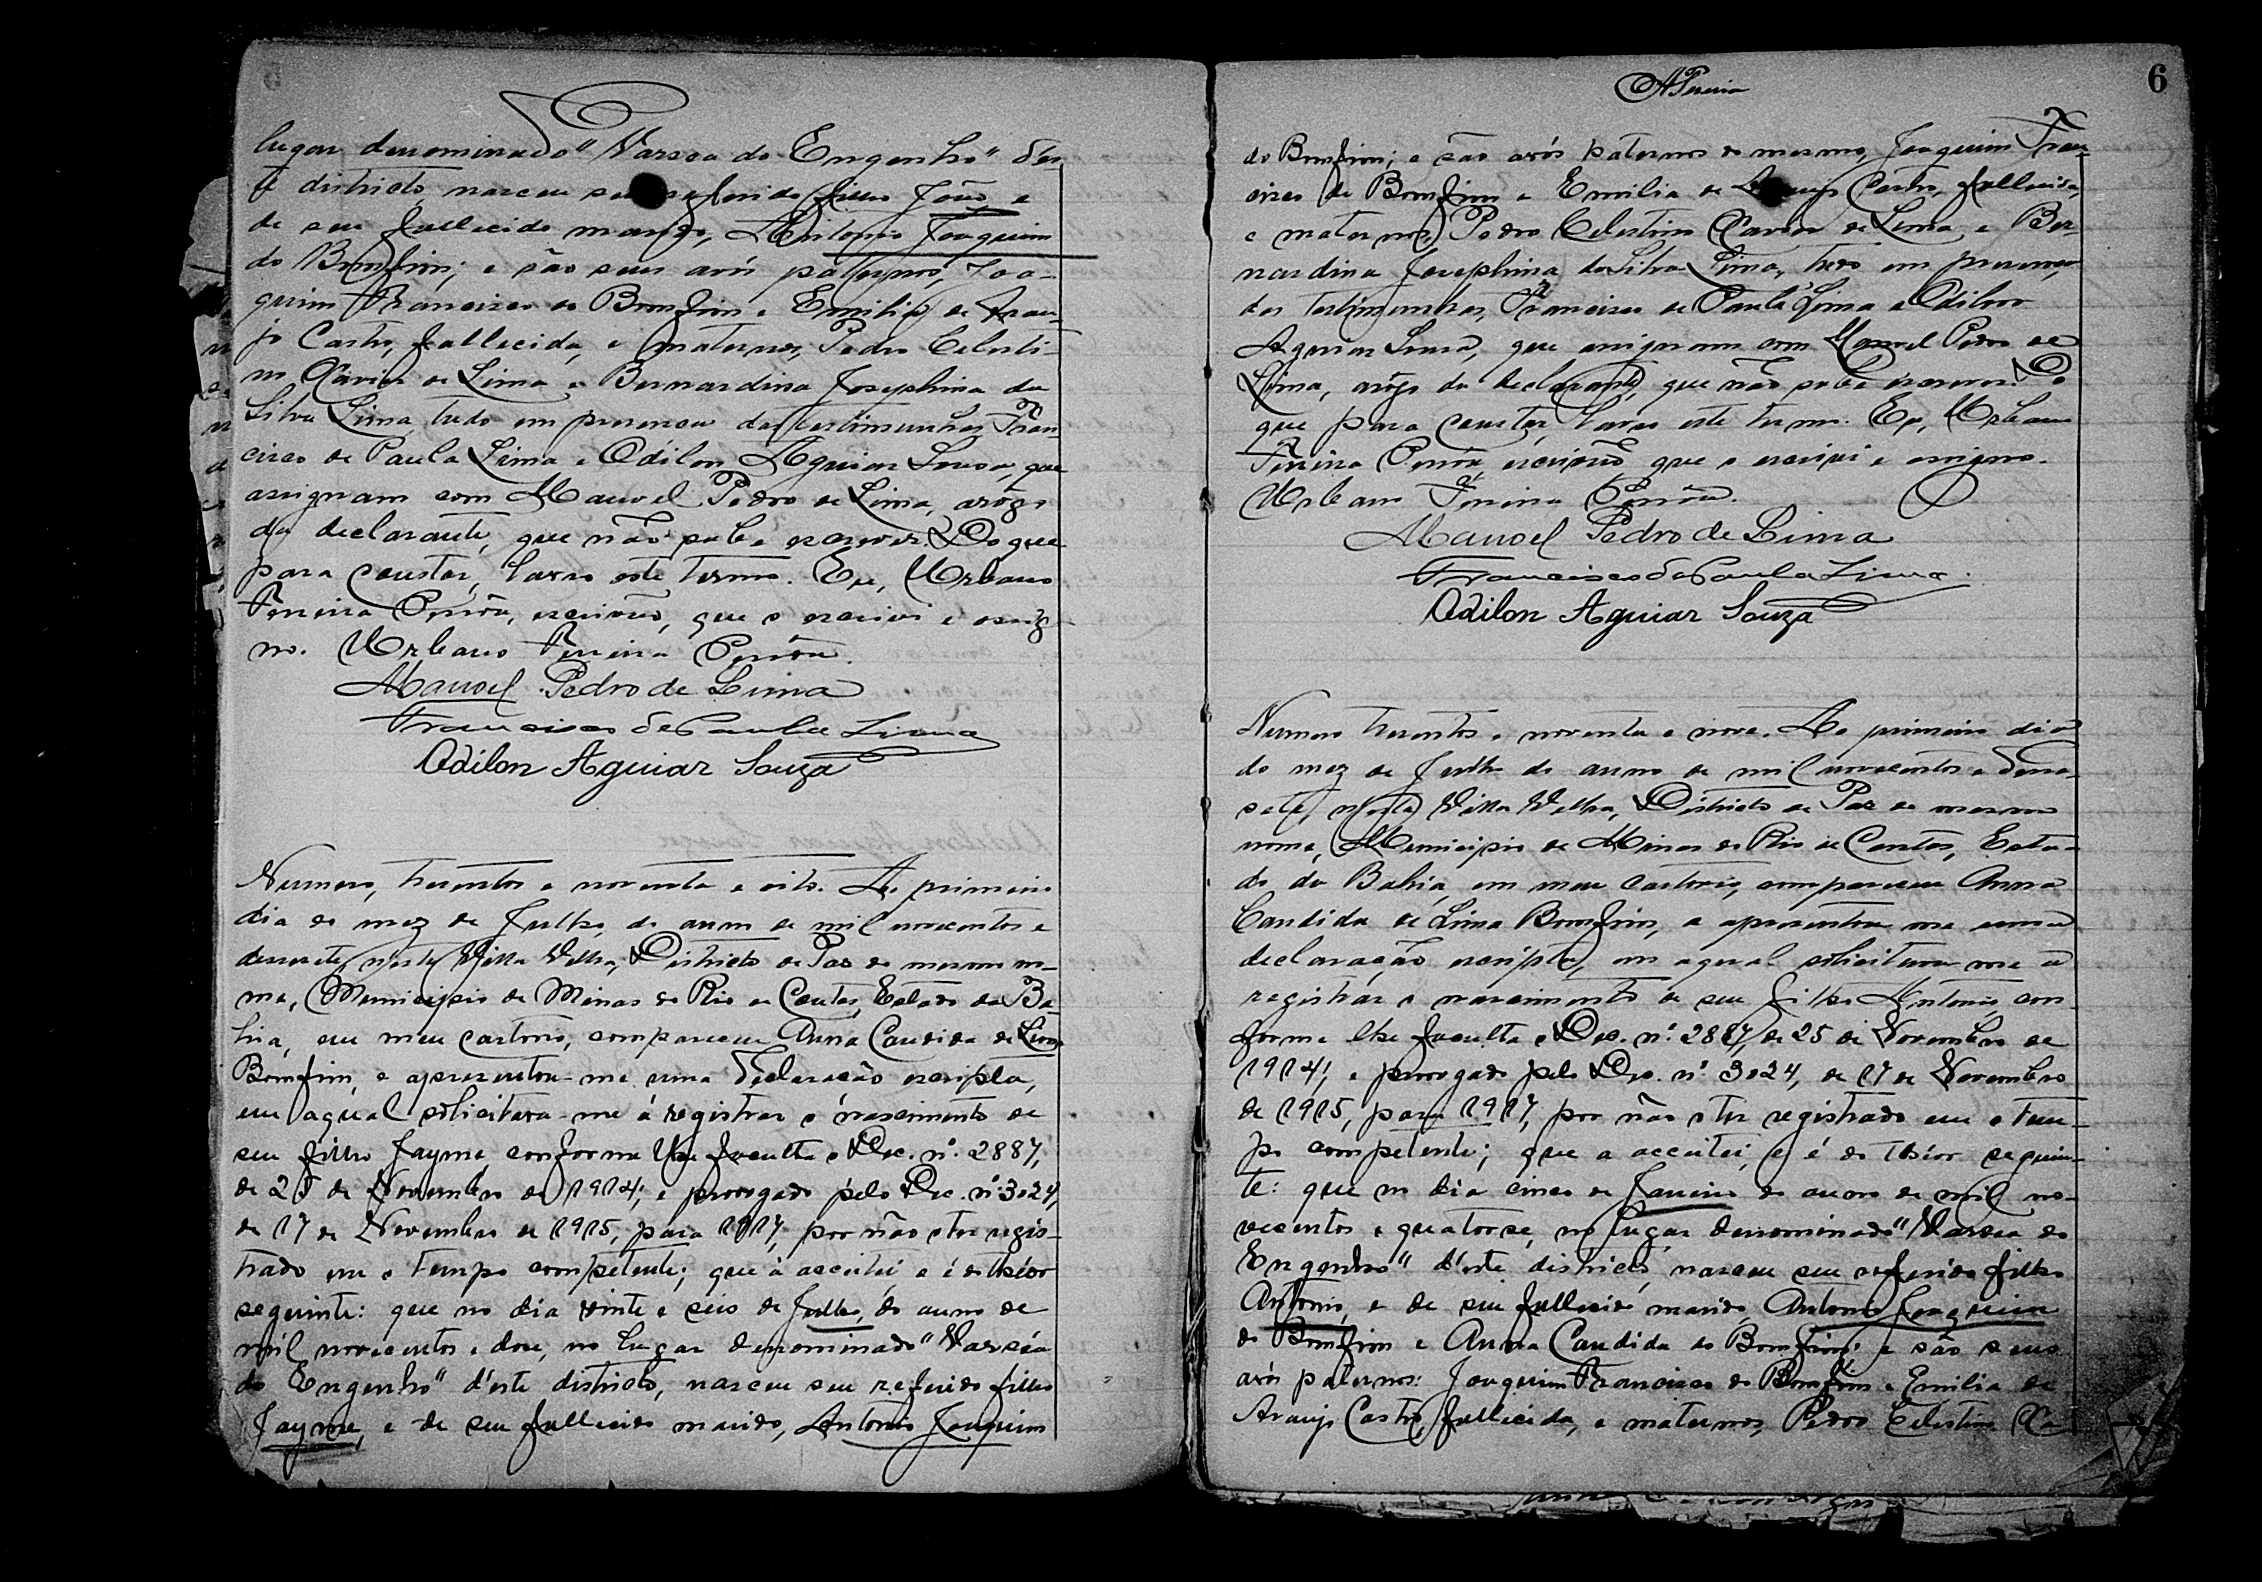 lugar denominado "Varsea do Engenho" d'es-
te districto, nasceu seu referido filho João, e
de seu fallecido marido, Antonio Joaquim
do Bomfim; e são seus avós paternos, Joa-
quim Francisco do Bomfim e Emilia de Arau-
jo Castro, fallecida, e maternos, Pedro Celesti-
no Xavier de Lima e Bernardina Josephina da
Silva Lima, tudo em presença das testimunhas, Fran-
cisco de Paula Lima e Odilon Aguiar Sousa, que
assignam com Manoel Pedro de Lima, arôgo
da declarante, que não sabe escrever. Do que
para constar, lavro este termo. Eu, Urbano
Pereira, escrivão, que o escrivi e assig-
no. Urbano
Manoel Pedro de Lima
Francisco de Paula Lima
Odilon Aguiar Souza
Numero, tresentos e noventa e oito. Ao primeiro
dia do mez de Julho do anno de mil novecentos e
desesete, nesta Villa Velha, Districto de Paz do mesmo no-
me, Municipio de Minas do Rio de Contas, Estado da Ba-
hia, em meu cartorio, compareceu Anna Candida de Lima
Bomfim, e apresentou-me uma declaração escripta,
em aqual solicitava-me á registrar o nascimento de
seu filho Jayme, conforme lhe faculta o Dec. nº. 2887,
de 25 de Novembro de 1914; e prorogado pelo Dec. nº 3024,
de 17 de Novembro de 1915, para 1917, por não o ter regis-
trado em o tempo competente; que à acceitei, e é do theôr
seguinte: que no dia vinte e seis de Julho, do anno de
mil novecentos e dose, no lugar denominado "Varsêa
do Engenho" d'este districto, nasceu seu referido filho
Jayme, e de seu fallecido marido, Antonio Joaquim
6
do Bomfim; e são avós paternos do mesmo, Joaquim Fran-
cisco do Bomfim e Emilia de Araujo Castro, fallecida,
e maternos, Pedro Celestino Xavier de Lima e Ber-
nardina Josephina da Silva Lima, tudo em presença
das testimunhas, Francisco de Paula Lima e Odilon
Aguiar Sousa, que assignam com Manoel Pedro de
Lima, arôgo da declarante, que não sabe escrever. Do
que para constar, lavro este termo. Eu, Urbano
escrivão, que o escrivi e assigno.
Urbano
Manoel Pedro de Lima
Francisco de Paula Lima
Odilon Aguiar Souza
Numero tresentos e noventa e nove. Ao primeiro dia
do mez de Julho do anno de mil novecentos e dese-
sete, nesta Villa Velha, Districto de Paz do mesmo
nome, Municipio de Minas do Rio de Contas, Esta-
do da Bahia, em meu cartorio, compareceu Anna
Candida de Lima Bomfim, e apresentou-me uma
declaração escripta, em aqual solicitava-me á
registrar o nascimento de seu filho Antonio, con-
forme lhe faculta o Dec. nº. 2887, de 25 de Novembro de
1914, e prorogado pelo Dec. nº 3024, de 17 de Novembro
de 1915, para 1917, por não o ter registrado em o tem-
po competente; que a acceitei, e é do theôr seguin-
te: que no dia cinco de Janeiro do anno de mil no-
vecentos e quatorse, no lugar denominado "Varsea do
Engenho" d'este districto, nasceu seu referido filho
Antonio, e de seu fallecido marido, Antonio Joaquim
do Bomfim e Anna Candida do Bomfim; e são seus
avós paternos: Joaquim Francisco do Bomfim e Emilia de
Araujo Castro, fallecida, e maternos, Pedro Celestino Xa-